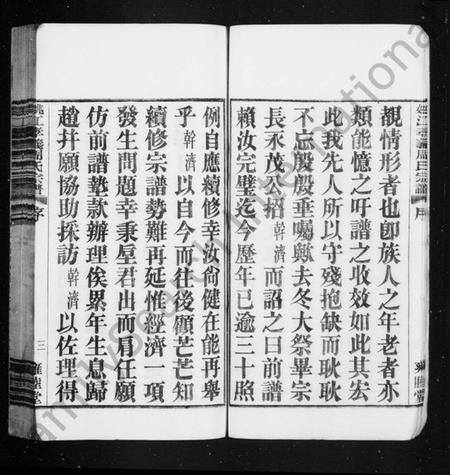 覩情形者也卽族人之年老者亦
類能憶之吁譜之收效如此其宏
此我先人所以守殘抱缺而耿耿
不忘殷殷垂囑歟去冬大祭畢宗
長永茂公招幹濟而詔之曰前譜
賴汝完璧迄今歷年已逾三十照
例自應續修幸汝尙健在能再舉
乎幹濟以自今而往後顧茫茫知
續修宗譜勢難再延惟經濟一項
發生問題幸秉垕君出而肩任願
仿前譜墊款辦理俟累年生息歸
趙幷願協助採訪幹濟以佐理得
序
三